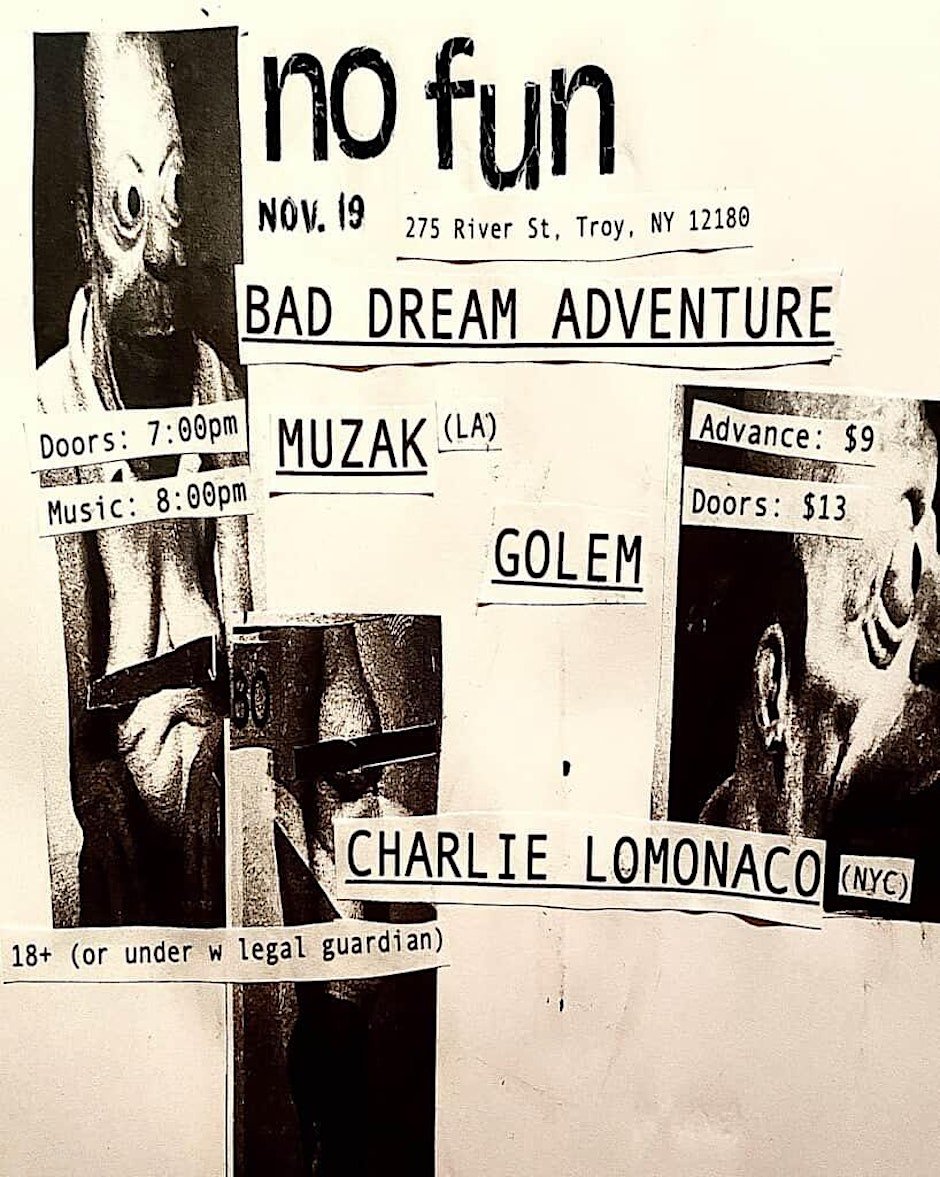 no fun
NOV. 19
275 River St, Troy, NY 12180
BAD DREAM ADVENTURE
Doors: 7:00pm
Music: 8:00pm
MUZAK (LA)
Advance: $9
Doors: $13
GOLEM
80
CHARLIE LOMONACO (NYC)
18+ (or under w legal guardian)